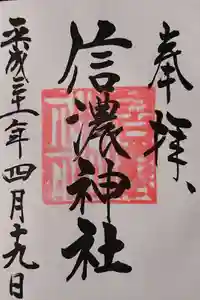 奉拝、
信濃神社
平成二十一年四月十九日